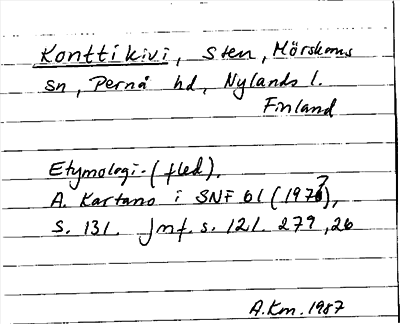 Konttikivi, Sten, Mörskoms
sn, Pernå hd, Nylands l.
Finland
Etymologi. (fled).
A. Kartano i SNF 61 (197),
s. 131. Jmf. s. 121. 279, 26
A.Km. 1987